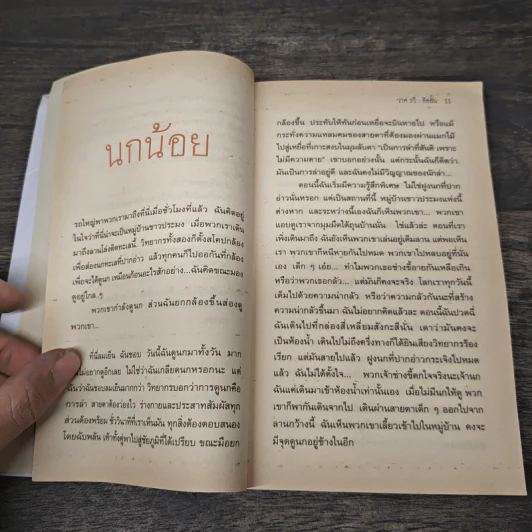 นกน้อย
รถใหญ่พาพวกเรามาถึงที่นี่เมื่อชั่วโมงที่แล้ว ฉันคิดอยู่
ในใจว่าที่นี่น่าจะเป็นหมู่บ้านชาวประมง เมื่อพวกเราเดิน
มาถึงลานโล่งติดทะเลนี้ วิทยากรทั้งสองก็ตั้งสโคปกล้อง
เพื่อส่องนกทะเลที่ปากอ่าว แล้วทุกคนก็ไปออกันที่กล้อง
เพื่อจะได้ดูนก เหมือนก้อนอะไรสักอย่าง...ฉันคิดขณะมอง
ดูอยู่ไกล ๆ
พวกเขากำลังดูนก ส่วนฉันยกกล้องขึ้นส่องดู
พวกเขา...
ที่นี่ลมเย็น ฉันชอบ วันนี้ฉันดูนกมาทั้งวัน มาก
ไม่อยากดูอีกเลย ไม่ใช่ว่าฉันเกลียดนกหรอกนะ แต่
ว่าฉันชอบลมเย็นมากกว่า วิทยากรบอกว่าการดูนกคือ
การล่า สายตาต้องว่องไว ร่างกายและประสาทสัมผัสทุก
ส่วนต้องพร้อม ชั่ววินาทีที่เราเห็นมัน ทุกสิ่งต้องตอบสนอง
โดยฉับพลัน เท้าทั้งคู่พาไปสู่ชัยภูมิที่ได้เปรียบ ขณะมือยก
วาด รวี : คิดถึง 11
กล้องขึ้น ประทับให้ทันก่อนเหยื่อจะบินหายไป หรือแม้
กระทั่งความแหลมคมของสายตาที่ต้องมองผ่านแมกไม้
ไปสู่เหยื่อที่เกาะสงบในมุมลับตา "เป็นการล่าที่สันติ เพราะ
ไม่มีความตาย" เขาบอกอย่างนั้น แต่กระนั้นฉันก็คิดว่า
มันเป็นการล่าอยู่ดี และฉันคงไม่มีวิญญาณของนักล่า...
ตอนนี้ฉันเริ่มมีความรู้สึกพิเศษ ไม่ใช่ฝูงนกที่ปาก
อ่าวนั่นหรอก แต่เป็นสถานที่นี้ หมู่บ้านชาวประมงแห่งนี้
ต่างหาก และระหว่างนี้เองฉันก็เห็นพวกเขา... พวกเขา
แอบดูเราจากมุมมืดใต้ถุนบ้านนั้น ใช่แล้วล่ะ ตอนที่เรา
เพิ่งเดินมาถึง ฉันยังเห็นพวกเขาเล่นอยู่เต็มลาน แต่พอเห็น
เรา พวกเขาก็หนีหายกันไปหมด พวกเขาไปหลบอยู่ที่นั่น
เอง เด็ก ๆ เอ๋ย... ทำไมพวกเธอช่างขี้อายกันเหลือเกิน
หรือว่าพวกเธอกลัว... แต่มันก็คงจะจริง โลกเราทุกวันนี้
เต็มไปด้วยความน่ากลัว หรือว่าความกลัวกันนะที่สร้าง
ความน่ากลัวขึ้นมา ฉันไม่อยากคิดแล้วละ ตอนนี้ฉันปวดฉี่
ฉันเดินไปที่กล่องสี่เหลี่ยมสังกะสีนั่น เดาว่ามันคงจะ
เป็นห้องน้ำ เดินไปไม่ถึงครึ่งทางก็ได้ยินเสียงวิทยากรร้อง
เรียก แต่มันสายไปแล้ว ฝูงนกที่ปากอ่าวกระเจิงไปหมด
แล้ว ฉันไม่ได้ตั้งใจ... พวกเจ้าช่างขี้ตกใจจริงนะเจ้านก
ฉันแค่เดินมาเข้าห้องน้ำเท่านั้นเอง เมื่อไม่มีนกให้ดู พวก
เขาก็พากันเดินจากไป เดินผ่านสายตาเด็ก ๆ ออกไปจาก
ลานกว้างนี้ ฉันเห็นพวกเขาเลี้ยวเข้าไปในหมู่บ้าน คงจะ
มีจุดดูนกอยู่ข้างในอีก